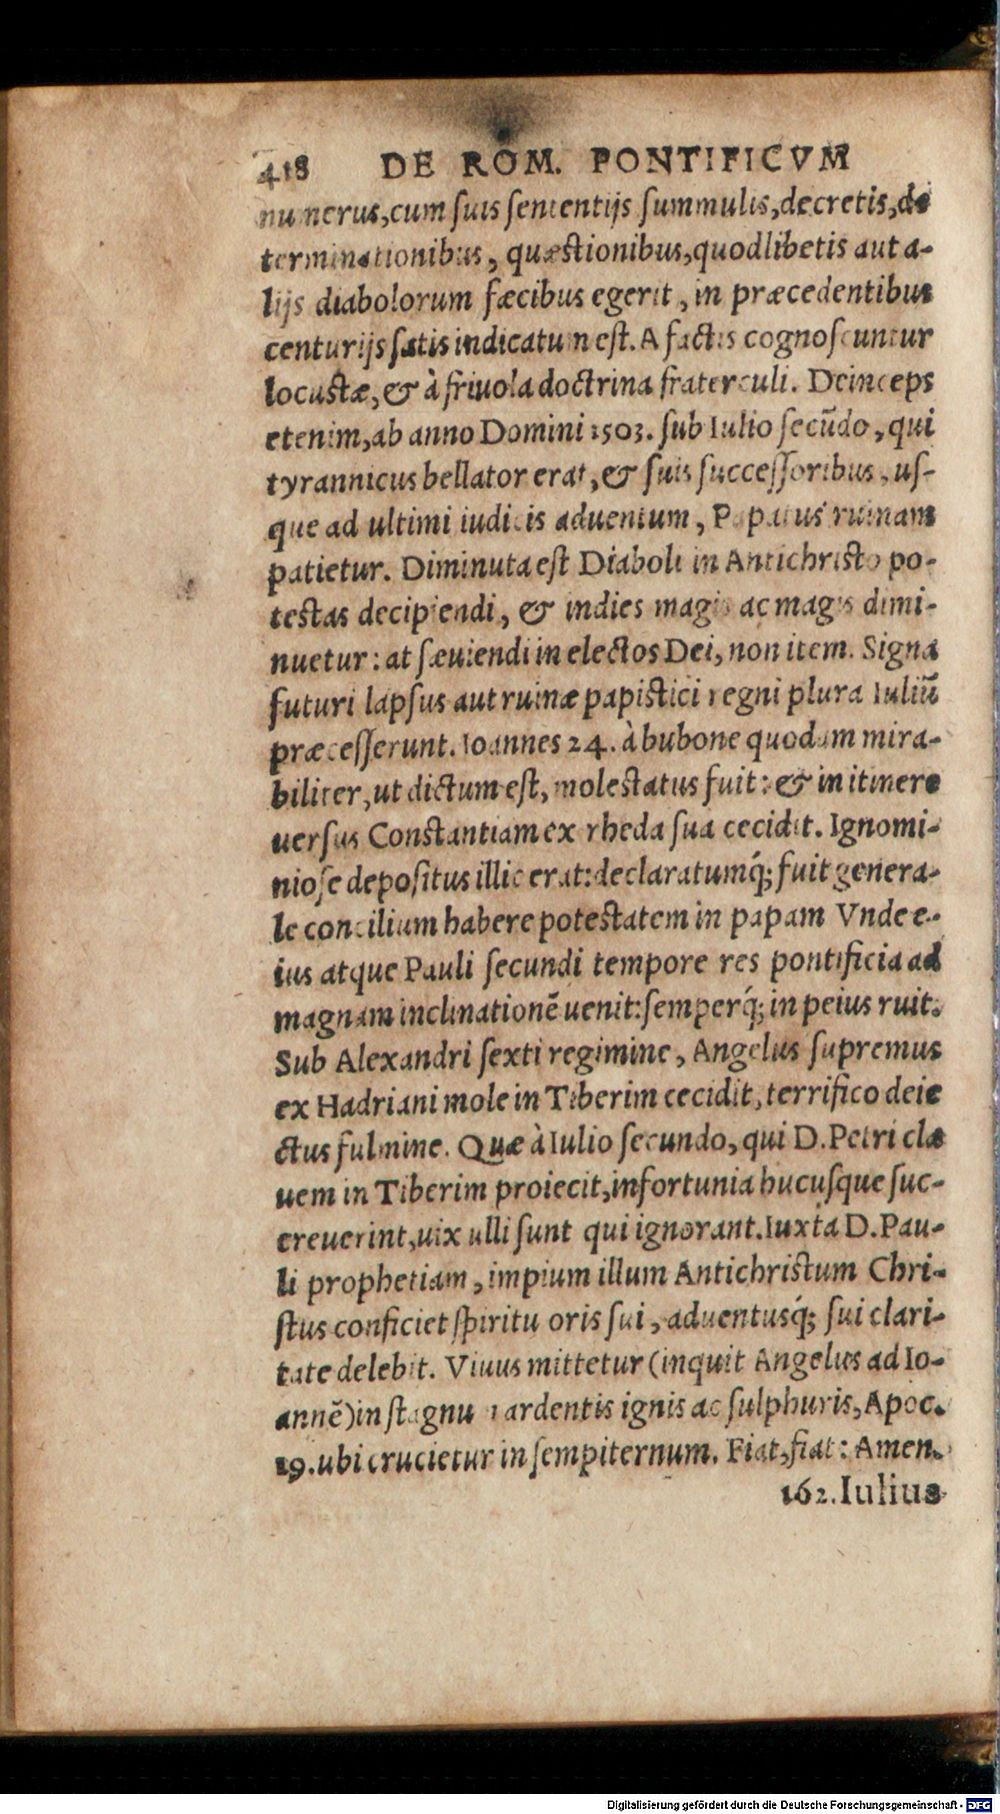 418 DE ROM. PONTIFICVM
numerus,cum ſuis ſententijs ſummulis,decretis,de
terminationibus, quæſtionibus,quodlibetis aut a-
lijs diabolorum fæcibus egerit, in præcedentibus
centurijs ſatis indicatum eſt. A factis cognoſcuntur
locuſtæ,& à friuola doctrina fraterculi. Deinceps
etenim,ab anno Domini 1503. ſub Iulio ſecūdo, qui
tyrannicus bellator erat,& ſuis ſucceſſoribus, uſ-
que ad ultimi iudicis aduentum, Papatus ruinam
patietur. Diminuta eſt Diaboli in Antichriſto po-
teſtas decipiendi, & indies magis ac magis dimi-
nuetur: at ſæuiendi in electos Dei, non item. Signa
futuri lapſus aut ruinæ papiſtici regni plura Iuliū
præceſſerunt. Ioannes 24. à bubone quodam mira-
biliter,ut dictum eſt, moleſtatus fuit: & in itinere
uerſus Conſtantiam ex rheda ſua cecidit. Ignomi-
nioſe depoſitus illic erat: declaratumq́; fuit genera-
le concilium habere poteſtatem in papam Vnde e-
ius atque Pauli ſecundi tempore res pontificia ad
magnam inclinationē uenit: ſemperq́; in peius ruit.
Sub Alexandri ſexti regimine, Angelus ſupremus
ex Hadriani mole in Tiberim cecidit, terrifico deie
ctus fulmine. Quæ à Iulio ſecundo, qui D. Petri cla
uem in Tiberim proiecit,infortunia hucuſque ſuc-
creuerint,uix ulli ſunt qui ignorant. Iuxta D. Pau-
li prophetiam, impium illum Antichriſtum Chri-
ſtus conficiet ſpiritu oris ſui, aduentusq́; ſui clari-
tate delebit. Viuus mittetur (inquit Angelus ad Io-
annē) in ſtagnum ardentis ignis ac ſulphuris, Apoc.
19. ubi crucietur in ſempiternum. Fiat, fiat: Amen.
162. Iulius
Digitalisierung gefördert durch die Deutsche Forschungsgemeinschaft - DFG